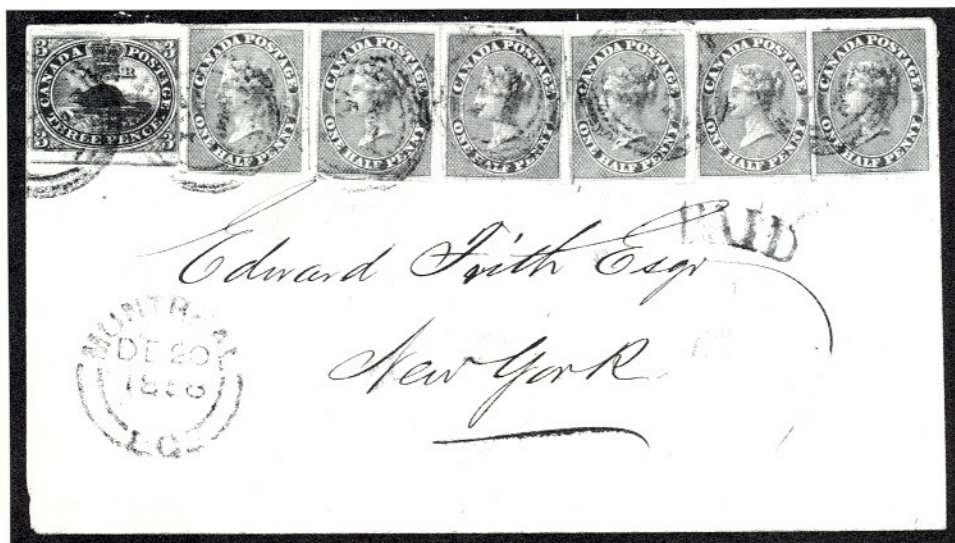 3 3
CANADA POSTAGE
THREE PENCE.
3 3
CANADA POSTAGE
ONE HALF PENNY
CANADA POSTAGE
ONE HALF PENNY
CANADA POSTAGE
ONE HALF PENNY
CANADA POSTAGE
ONE HALF PENNY
CANADA POSTAGE
ONE HALF PENNY
CANADA POSTAGE
ONE HALF PENNY
PAID
Edward Frith Esqr
New York
MONTREAL
DE 20
1858
L.C.